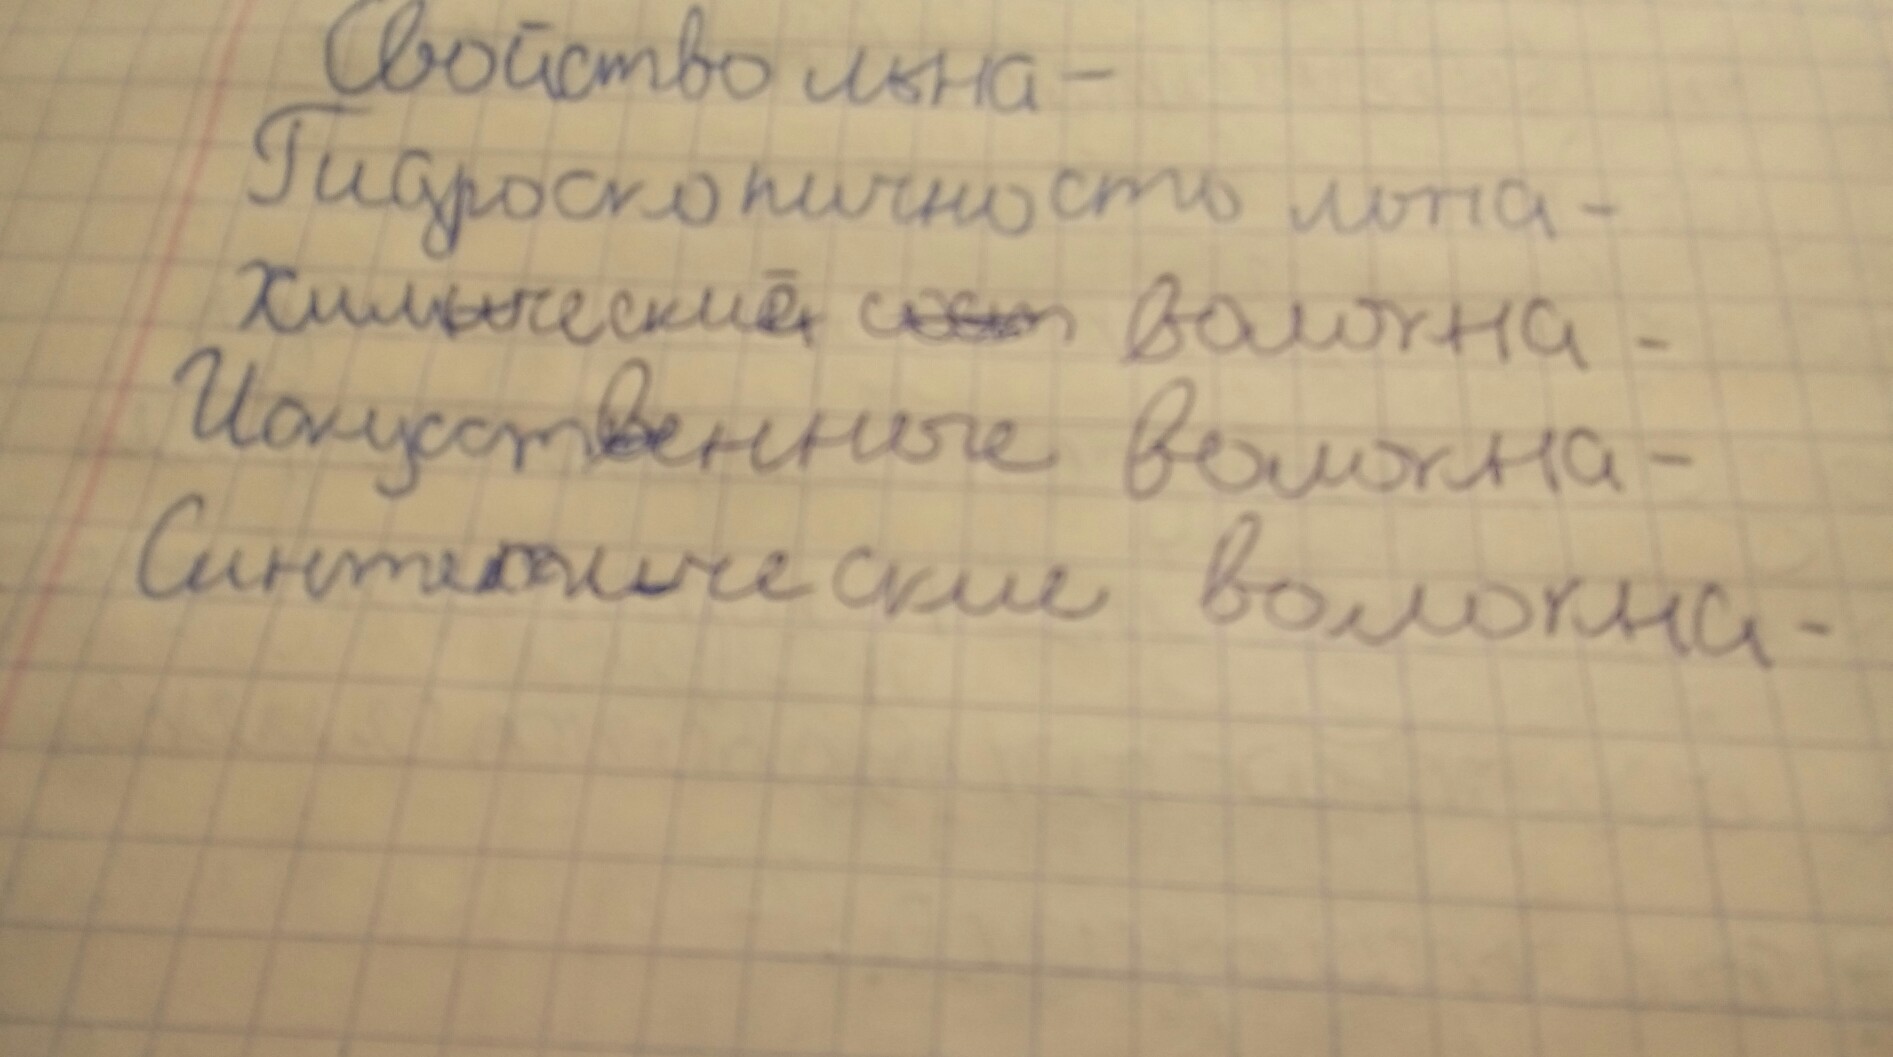 Свойство льна -
Гидроскопичность льна -
Химические волокна -
Искусственные волокна -
Синтетические волокна -